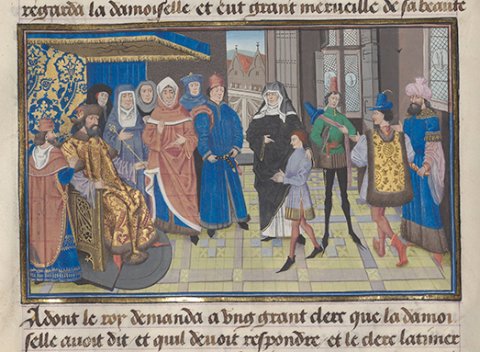 regarda la damoiselle et eut grant merueille de sa beaute
Adont le roy demanda a vng grant clerc que la damoi
selle auoit dit et quil deuoit respondre et le clerc latimer